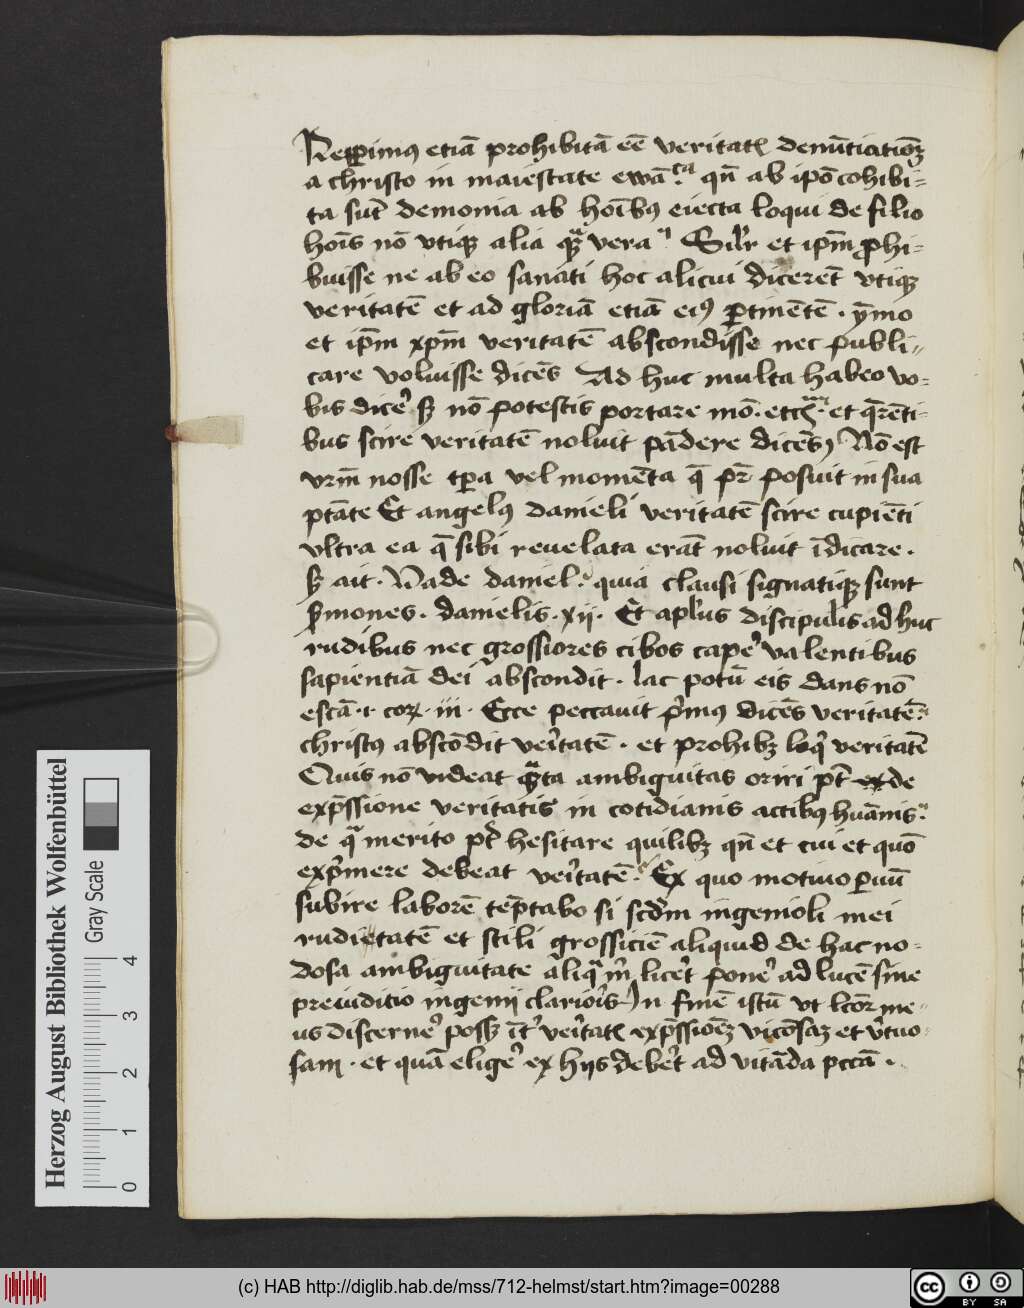 Repperimus etiā prohibitā eē veritatꝭ denūtiatiōꝫ
a christo in maiestate ewā.ca qn̄ ab ipō cohibi=
ta sūt demonia ab hoībꝯ eiecta loqui de filio
hoīs nō vtiqꝫ alia qᷓꝫ vera Sil'r et ip̄m ꝓhi=
buisse ne ab eo sanati hoc alicui dicerēt vtiqꝫ
veritatē et ad gloriā etiā eiꝯ ꝑtinētē . ymo
et ip̄m xp̄m veritatē abscondisse nec publi=
care voluisse dicēs Ad huc multa habeo vo=
bis dicer̓ sꝫ nō potestis portare mō . etcꝫ . et q̄rēti=
bus scire veritatē noluit pādere dicēs Nō est
vrm̄ nosse tp̄a vel momēta q̄ pr̄ posuit in sua
ptāte Et angelꝯ danieli veritatē scire cupiēti
vltra ea q̄ sibi reuelata erāt noluit īdicare .
sꝫ ait . Vade daniel . quia clausi signatiqꝫ sunt
s̓mones . danielis . xij . Et apl'us discipulis ad huc
rudibus nec grossiores cibos caper̓ valentibus
sapientiā dei abscondit . lac potū eis dans nō
escā . i . corꝝ . iii . Ecce peccauit p̓mus dicēs veritatē .
christꝯ abscōdit ver̓itatē . et prohibꝫ loq̓ veritatē
Quis nō videat qᷓta ambiguitas oriri pt̄ de
exp̄ssione veritatis in cotidianis actibꝯ huānis .
de qᷓ merito pt̄ hesitare quilibꝫ qn̄ et cui et quō
exp̓mere debeat ver̓itatē . Ex quo motiuo ꝑuū
subire laborē tēptabo si scd̓m ingenioli mei
rudietatē et stili grossiciē aliquid de hac no=
dosa ambiguitate aliqᷓm̄ licer̓t poner̓ ad lucē sine
preiuditio ingenij clarior̓is In finē istū vt lcōr me=
us discerner̓ possꝫ īt̓ ver̓itatꝭ exp̄ssiōeꝫ vicōsaꝫ et v̓tuo=
sam . et quā eliger̓ ex hijs deber̓t ad vitāda pccā .
Herzog August Bibliothek Wolfenbüttel
Gray Scale
0 1 2 3 4
(c) HAB http://diglib.hab.de/mss/712-helmst/start.htm?image=00288
cc BY SA